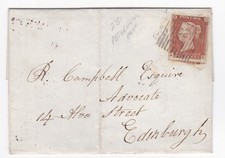 R. Campbell Esquire
Advocate
14 Alva Street
Edinburgh